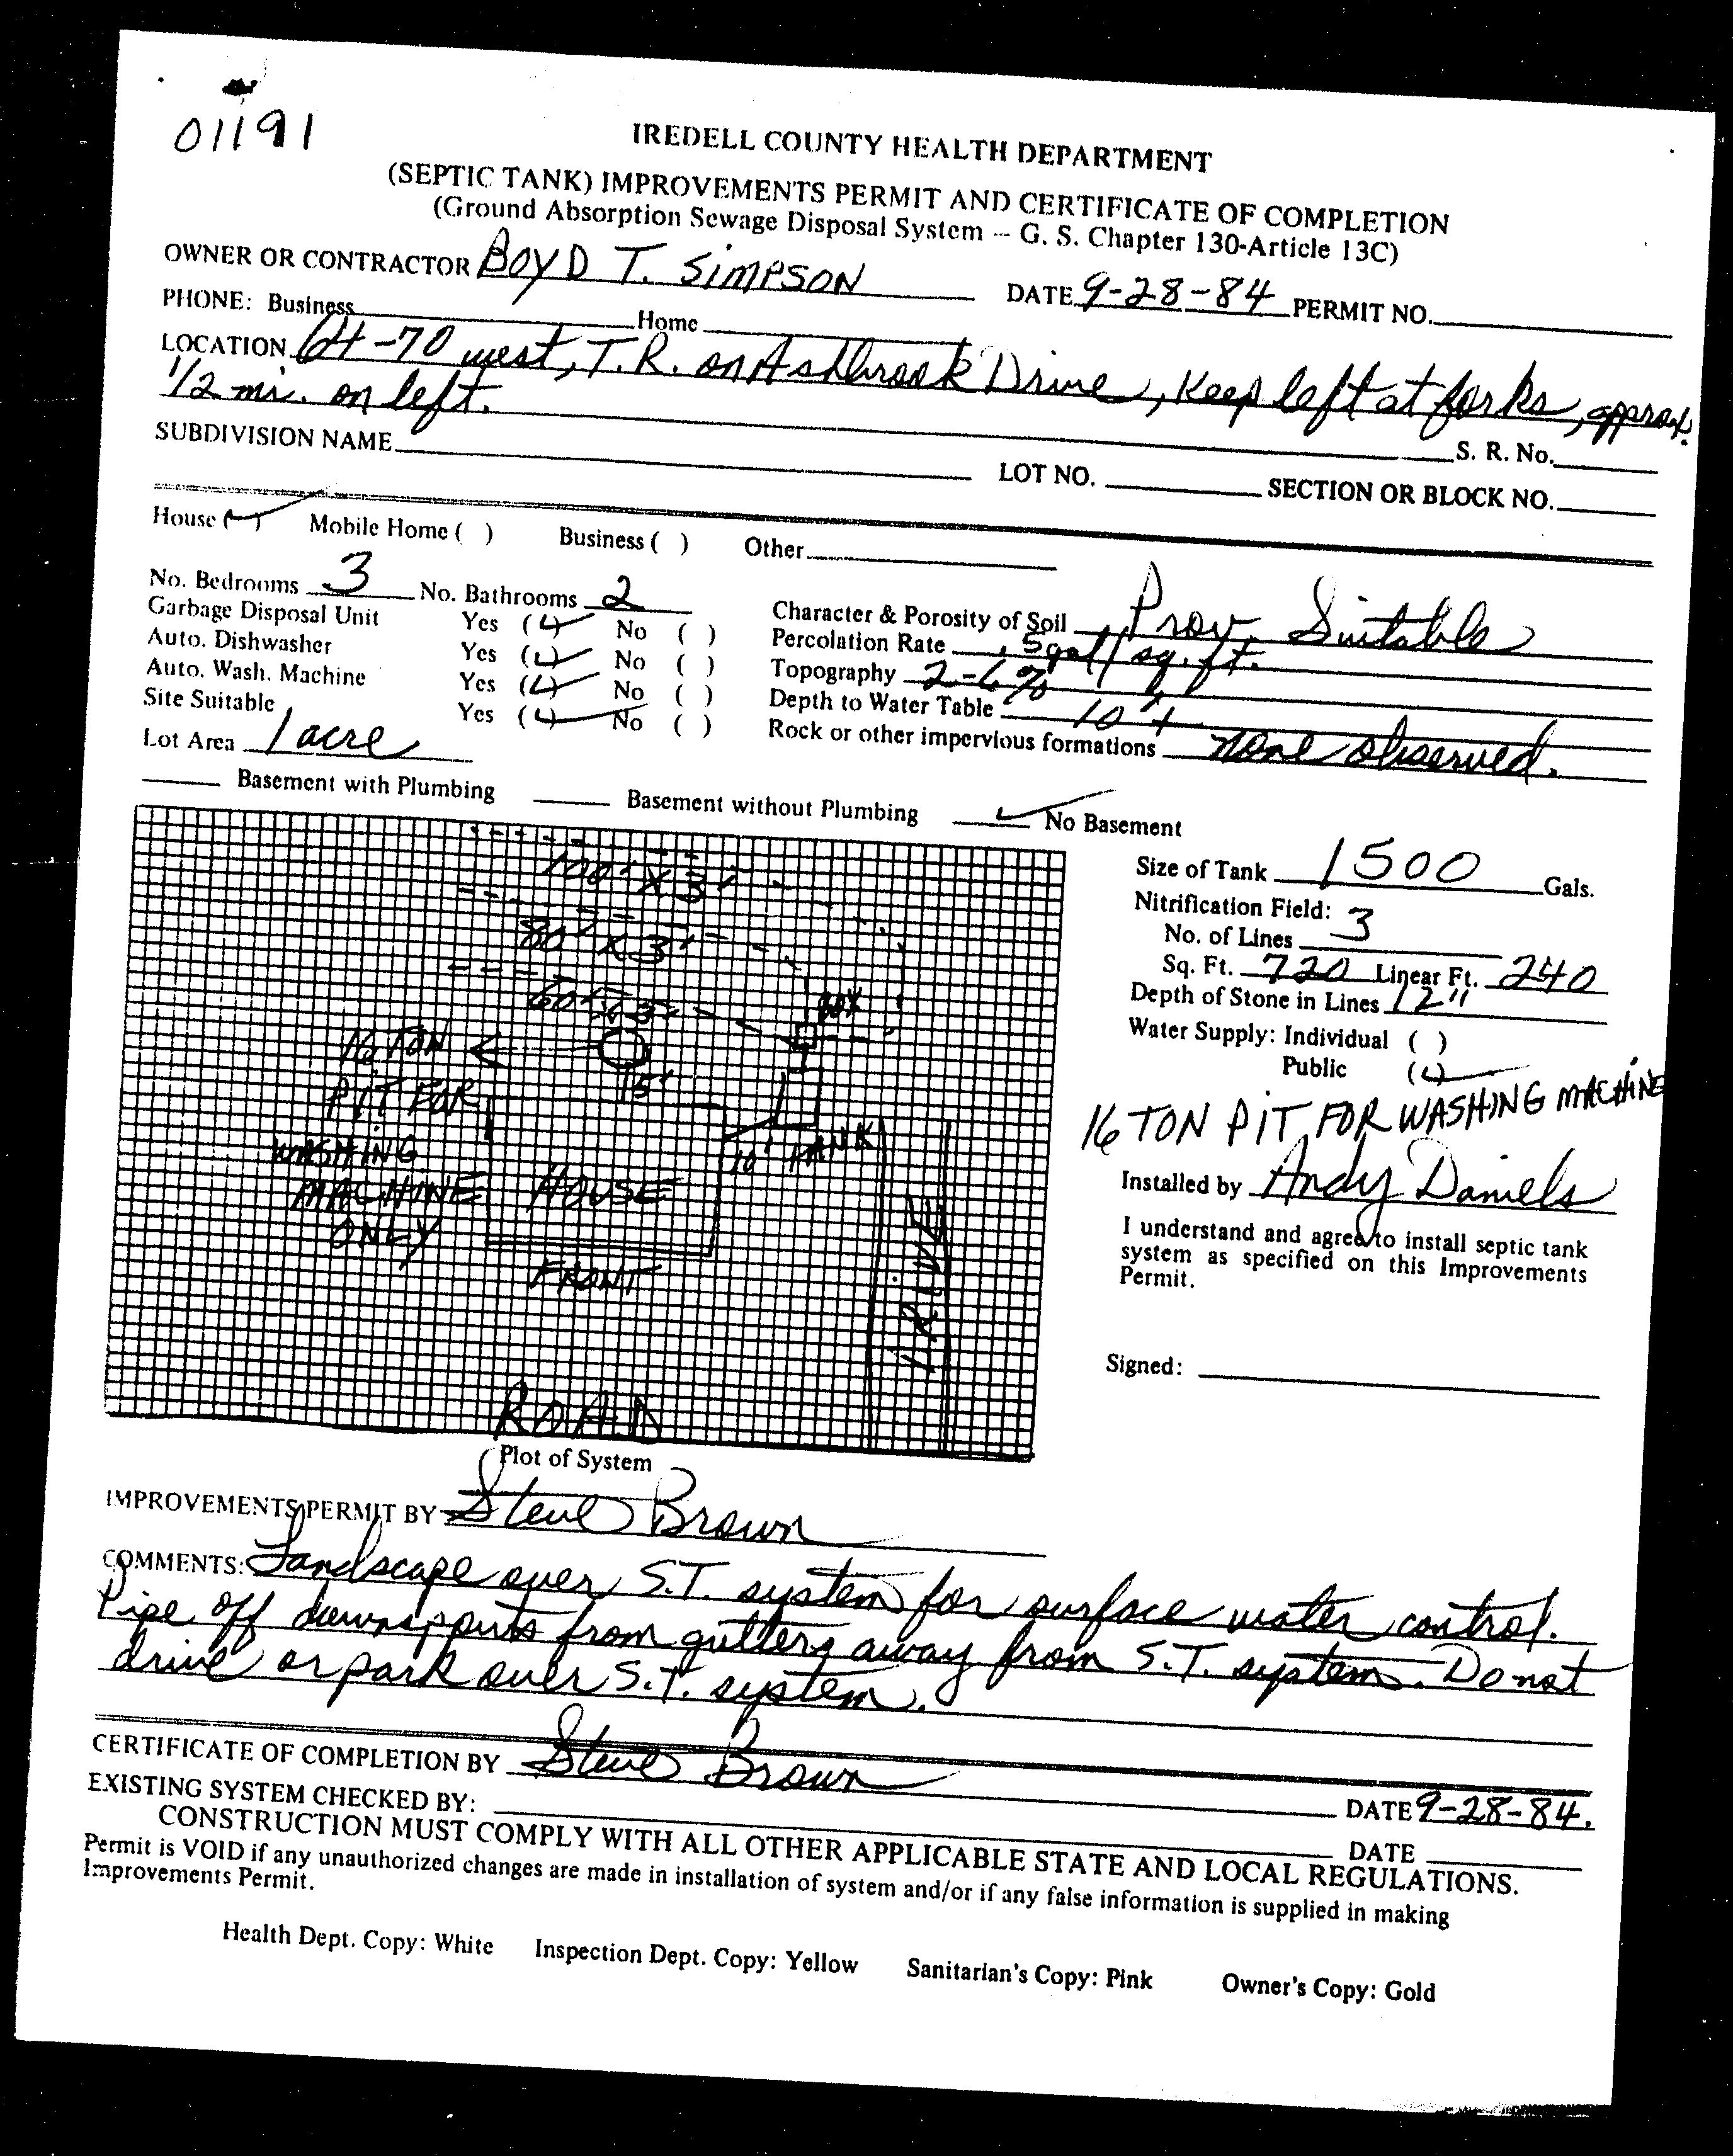 01191
IREDELL COUNTY HEALTH DEPARTMENT
(SEPTIC TANK) IMPROVEMENTS PERMIT AND CERTIFICATE OF COMPLETION
(Ground Absorption Sewage Disposal System -- G. S. Chapter 130-Article 13C)
OWNER OR CONTRACTOR BOYD T. SIMPSON DATE 9-28-84 PERMIT NO.
PHONE: Business Home
LOCATION 64-70 west, T.R. on Ashbrook Drive, Keep left at forks, approx.
1/2 mi. on left. S. R. No.
SUBDIVISION NAME LOT NO. SECTION OR BLOCK NO.
House (✓) Mobile Home ( ) Business ( ) Other
No. Bedrooms 3 No. Bathrooms 2 Character & Porosity of Soil Prov. Suitable
Garbage Disposal Unit Yes (✓) No ( ) Percolation Rate .5gal/sq.ft.
Auto. Dishwasher Yes (✓) No ( ) Topography 2-6%
Auto. Wash. Machine Yes (✓) No ( ) Depth to Water Table 10'+
Site Suitable Yes (✓) No ( ) Rock or other impervious formations none observed.
Lot Area 1 acre
Basement with Plumbing Basement without Plumbing ✓ No Basement
100' X 3'
80' X 3'
60' X 3'
BOX
16 TON
PIT FOR
WASHING
MACHINE
ONLY
15'
10'
TANK
HOUSE
FRONT
DRIVE
ROAD
Plot of System
Size of Tank 1500 Gals.
Nitrification Field:
No. of Lines 3
Sq. Ft. 720 Linear Ft. 240
Depth of Stone in Lines 12"
Water Supply: Individual ( )
Public (✓)
16 TON PIT FOR WASHING MACHINE
Installed by Andy Daniels
I understand and agree to install septic tank
system as specified on this Improvements
Permit.
Signed:
IMPROVEMENTS PERMIT BY Steve Brown
COMMENTS: Landscape over S.T. system for surface water control.
Pipe off downspouts from gutters away from S.T. system. Do not
drive or park over S.T. system.
CERTIFICATE OF COMPLETION BY Steve Brown DATE 9-28-84.
EXISTING SYSTEM CHECKED BY: DATE
CONSTRUCTION MUST COMPLY WITH ALL OTHER APPLICABLE STATE AND LOCAL REGULATIONS.
Permit is VOID if any unauthorized changes are made in installation of system and/or if any false information is supplied in making
Improvements Permit.
Health Dept. Copy: White Inspection Dept. Copy: Yellow Sanitarian's Copy: Pink Owner's Copy: Gold